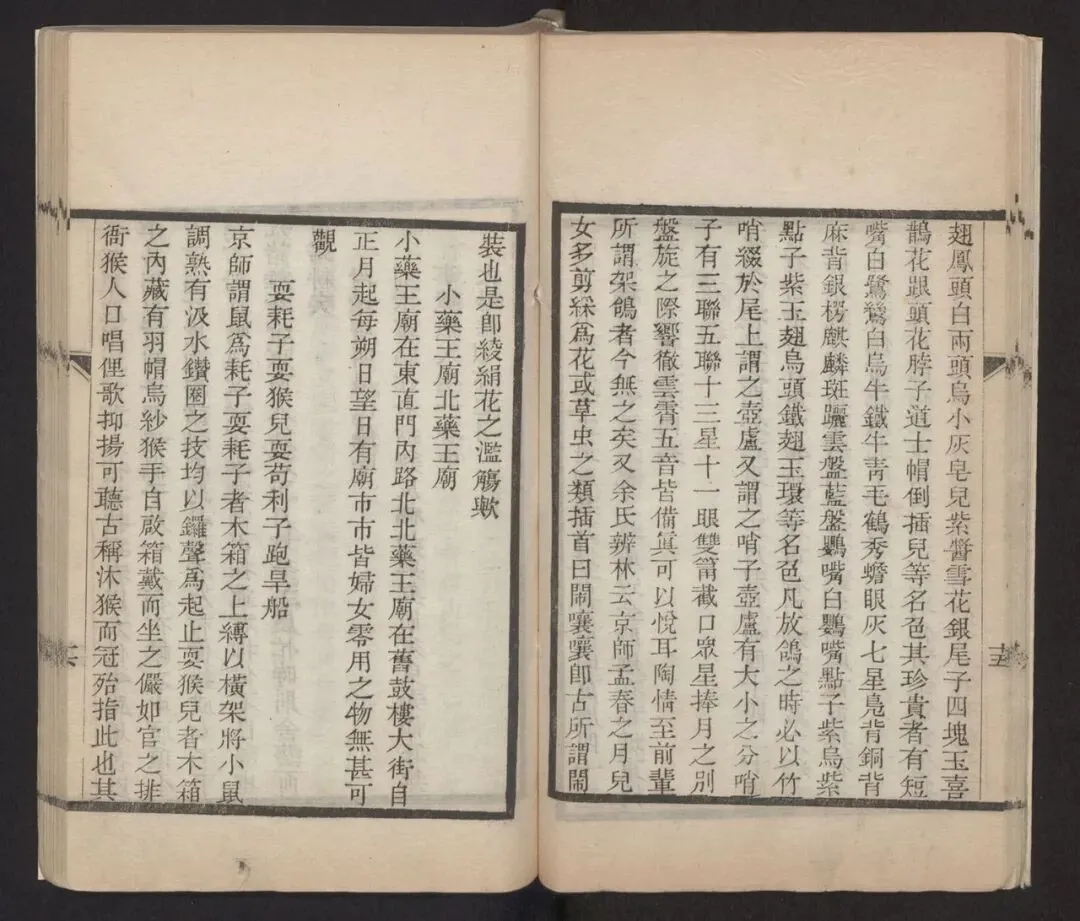 翅鳳頭白兩頭烏小灰皂兒紫醬雪花銀尾子四塊玉喜
鵲花跟頭花脖子道士帽倒插兒等名色其珍貴者有短
嘴白鷺鷥白烏牛鐵牛靑毛鶴秀蟾眼灰七星鳧背銅背
麻背銀楞麒麟斑䯄雲盤藍盤鸚嘴白鸚嘴點子紫烏紫
點子紫玉翅烏頭鐵翅玉環等名色凡放鴿之時必以竹
哨綴於尾上謂之壺盧又謂之哨子壺盧有大小之分哨
子有三聯五聯十三星十一眼雙筩截口眾星捧月之別
盤旋之際響徹雲霄五音皆備眞可以悅耳陶情至前輩
所謂架鴿者今無之矣又余氏辨林云京師孟春之月兒
女多剪綵爲花或草虫之類插首曰鬧嚷嚷卽古所謂鬧
裝也是卽綾絹花之濫觴歟
小藥王廟北藥王廟
小藥王廟在東直門內路北北藥王廟在舊鼓樓大街自
正月起每朔日望日有廟市市皆婦女零用之物無甚可
觀
耍耗子耍猴兒耍苟利子跑旱船
京師謂鼠爲耗子耍耗子者木箱之上縛以橫架將小鼠
調熟有汲水鑽圈之技均以鑼聲爲起止耍猴兒者木箱
之內藏有羽帽烏紗猴手自啟箱戴而坐之儼如官之排
衙猴人口唱俚歌抑揚可聽古稱沐猴而冠殆指此也其